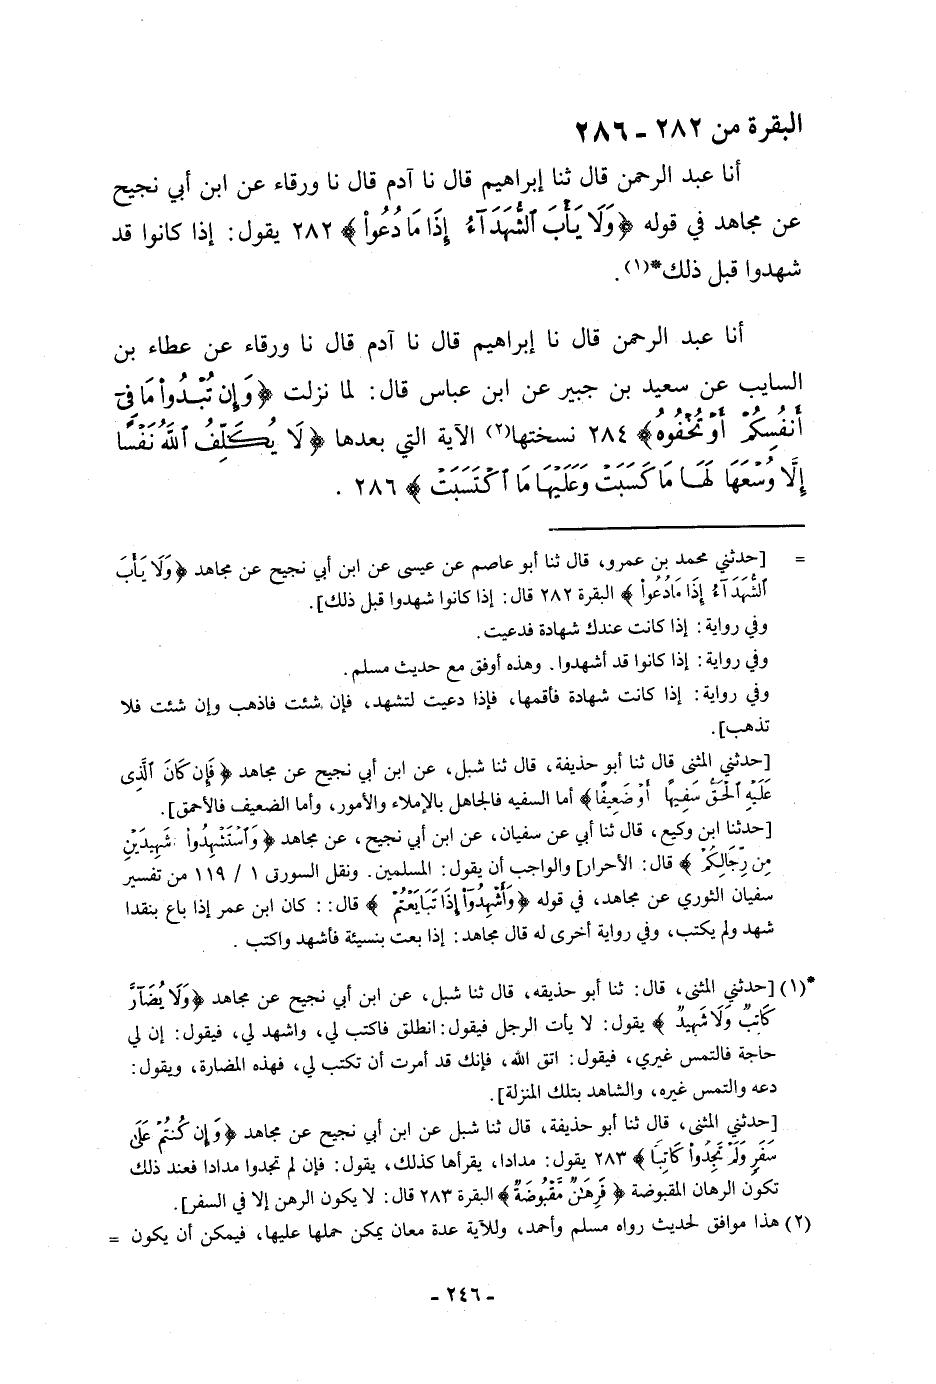 البقرة من ٢٨٢ ـ ٢٨٦
أنا عبد الرحمن قال ثنا إبراهيم قال نا آدم قال نا ورقاء عن ابن أبي نجيح
عن مجاهد في قوله ﴿وَلَا يَأْبَ ٱلشُّهَدَآءُ إِذَا مَا دُعُواْ﴾ ٢٨٢ يقول: إذا كانوا قد
شهدوا قبل ذلك*(١).
أنا عبد الرحمن قال نا إبراهيم قال نا آدم قال نا ورقاء عن عطاء بن
السايب عن سعيد بن جبير عن ابن عباس قال: لما نزلت ﴿وَإِن تُبْدُواْ مَا فِىٓ
أَنفُسِكُمْ أَوْ تُخْفُوهُ﴾ ٢٨٤ نسختها(٢) الآية التي بعدها ﴿لَا يُكَلِّفُ ٱللَّهُ نَفْسًا
إِلَّا وُسْعَهَا لَهَا مَا كَسَبَتْ وَعَلَيْهَا مَا ٱكْتَسَبَتْ﴾ ٢٨٦ .
= [حدثني محمد بن عمرو، قال ثنا أبو عاصم عن عيسى عن ابن أبي نجيح عن مجاهد ﴿وَلَا يَأْبَ
ٱلشُّهَدَآءُ إِذَا مَا دُعُواْ﴾ البقرة ٢٨٢ قال: إذا كانوا شهدوا قبل ذلك].
وفي رواية: إذا كانت عندك شهادة فدعيت.
وفي رواية: إذا كانوا قد أشهدوا. وهذه أوفق مع حديث مسلم.
وفي رواية: إذا كانت شهادة فأقمها، فإذا دعيت لتشهد، فإن شئت فاذهب وإن شئت فلا
تذهب].
[حدثني المثنى قال ثنا أبو حذيفة، قال ثنا شبل، عن ابن أبي نجيح عن مجاهد ﴿فَإِن كَانَ ٱلَّذِى
عَلَيْهِ ٱلْحَقُّ سَفِيهًا أَوْ ضَعِيفًا﴾ أما السفيه فالجاهل بالإملاء والأمور، وأما الضعيف فالأحمق].
[حدثنا ابن وكيع، قال ثنا أبي عن سفيان، عن ابن أبي نجيح، عن مجاهد ﴿وَٱسْتَشْهِدُواْ شَهِيدَيْنِ
مِن رِّجَالِكُمْ﴾ قال: الأحرار] والواجب أن يقول: المسلمين. ونقل السورتى ١ / ١١٩ من تفسير
سفيان الثوري عن مجاهد، في قوله ﴿وَأَشْهِدُوٓاْ إِذَا تَبَايَعْتُمْ﴾ قال:: كان ابن عمر إذا باع بنقدا
شهد ولم يكتب، وفي رواية أخرى له قال مجاهد: إذا بعت بنسيئة فأشهد واكتب .
*(١) [حدثني المثنى، قال: ثنا أبو حذيقه، قال ثنا شبل، عن ابن أبي نجيح عن مجاهد ﴿وَلَا يُضَآرَّ
كَاتِبٌ وَلَا شَهِيدٌ﴾ يقول: لا يأت الرجل فيقول: انطلق فاكتب لي، واشهد لي، فيقول: إن لي
حاجة فالتمس غيري، فيقول: اتق الله، فإنك قد أمرت أن تكتب لي، فهذه المضارة، ويقول:
دعه والتمس غيره، والشاهد بتلك المنزلة].
[حدثني المثنى، قال ثنا أبو حذيفة، قال ثنا شبل عن ابن أبي نجيح عن مجاهد ﴿وَإِن كُنتُمْ عَلَىٰ
سَفَرٍ وَلَمْ تَجِدُواْ كَاتِبًا﴾ ٢٨٣ يقول: مدادا، يقرأها كذلك، يقول: فإن لم تجدوا مدادا فعند ذلك
تكون الرهان المقبوضة ﴿فَرِهَٰنٌ مَّقْبُوضَةٌ﴾ البقرة ٢٨٣ قال: لا يكون الرهن إلا في السفر].
(٢) هذا موافق لحديث رواه مسلم وأحمد، وللآية عدة معان يمكن حملها عليها، فيمكن أن يكون =
ـ ٢٤٦ ـ